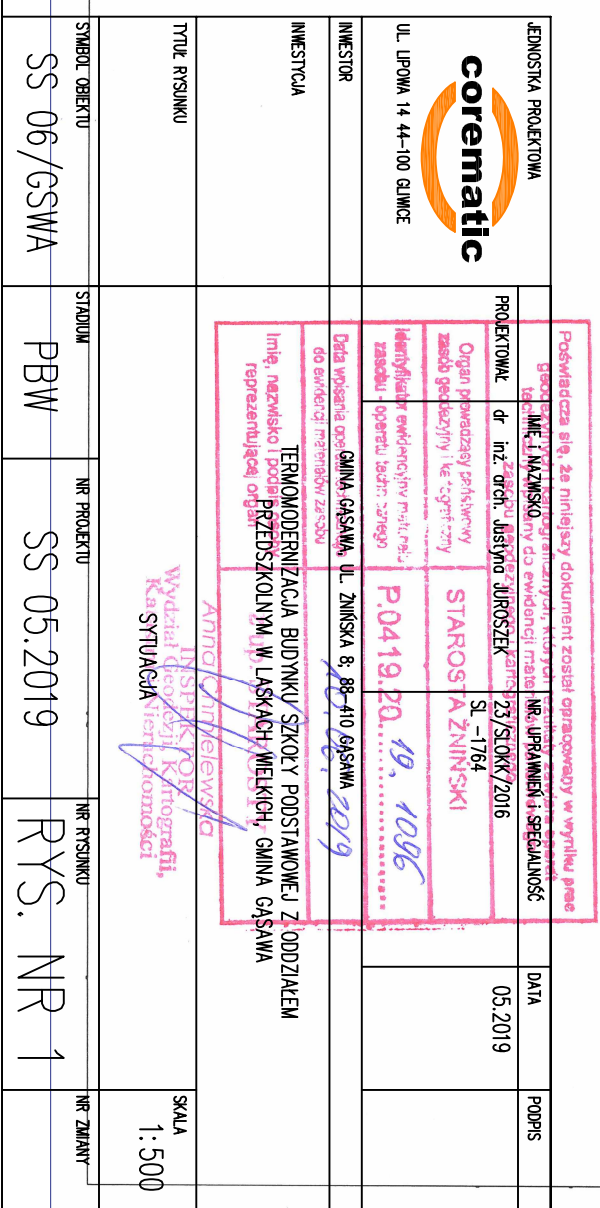 JEDNOSTKA PROJEKTOWA
corematic
UL. LIPOWA 14 44-100 GLIWICE
IMIĘ i NAZWISKO
NR. UPRAWNIEŃ i SPECJALNOŚĆ
DATA
PODPIS
PROJEKTOWAŁ
dr inż. arch. Justyna JUROSZEK
23/SLOKK/2016
SL -1764
05.2019
INWESTOR
GMINA GĄSAWA, UL. ŻNIŃSKA 8; 88-410 GĄSAWA
INWESTYCJA
TERMOMODERNIZACJA BUDYNKU SZKOŁY PODSTAWOWEJ Z ODDZIAŁEM
PRZEDSZKOLNYM W LASKACH WIELKICH, GMINA GĄSAWA
TYTUŁ RYSUNKU
SYTUACJA
SKALA
1:500
SYMBOL OBIEKTU
SS 06/GSWA
STADIUM
PBW
NR PROJEKTU
SS 05.2019
NR RYSUNKU
RYS. NR 1
NR ZMIANY
Poświadcza się, że niniejszy dokument został opracowany w wyniku prac
geodezyjnych i kartograficznych, których rezultaty zawiera operat
techniczny wpisany do ewidencji materiałów
Organ prowadzący państwowy
zasób geodezyjny i kartograficzny
STAROSTA ŻNIŃSKI
Identyfikator ewidencyjny materiału
zasobu - operatu technicznego
P.0419.20 19. 1096
Data wpisania operatu technicznego
do ewidencji materiałów zasobu
2019
Imię, nazwisko i podpis osoby
reprezentującej organ
Anna Chmielewska
INSPEKTOR
Wydział Geodezji, Kartografii,
Nieruchomości